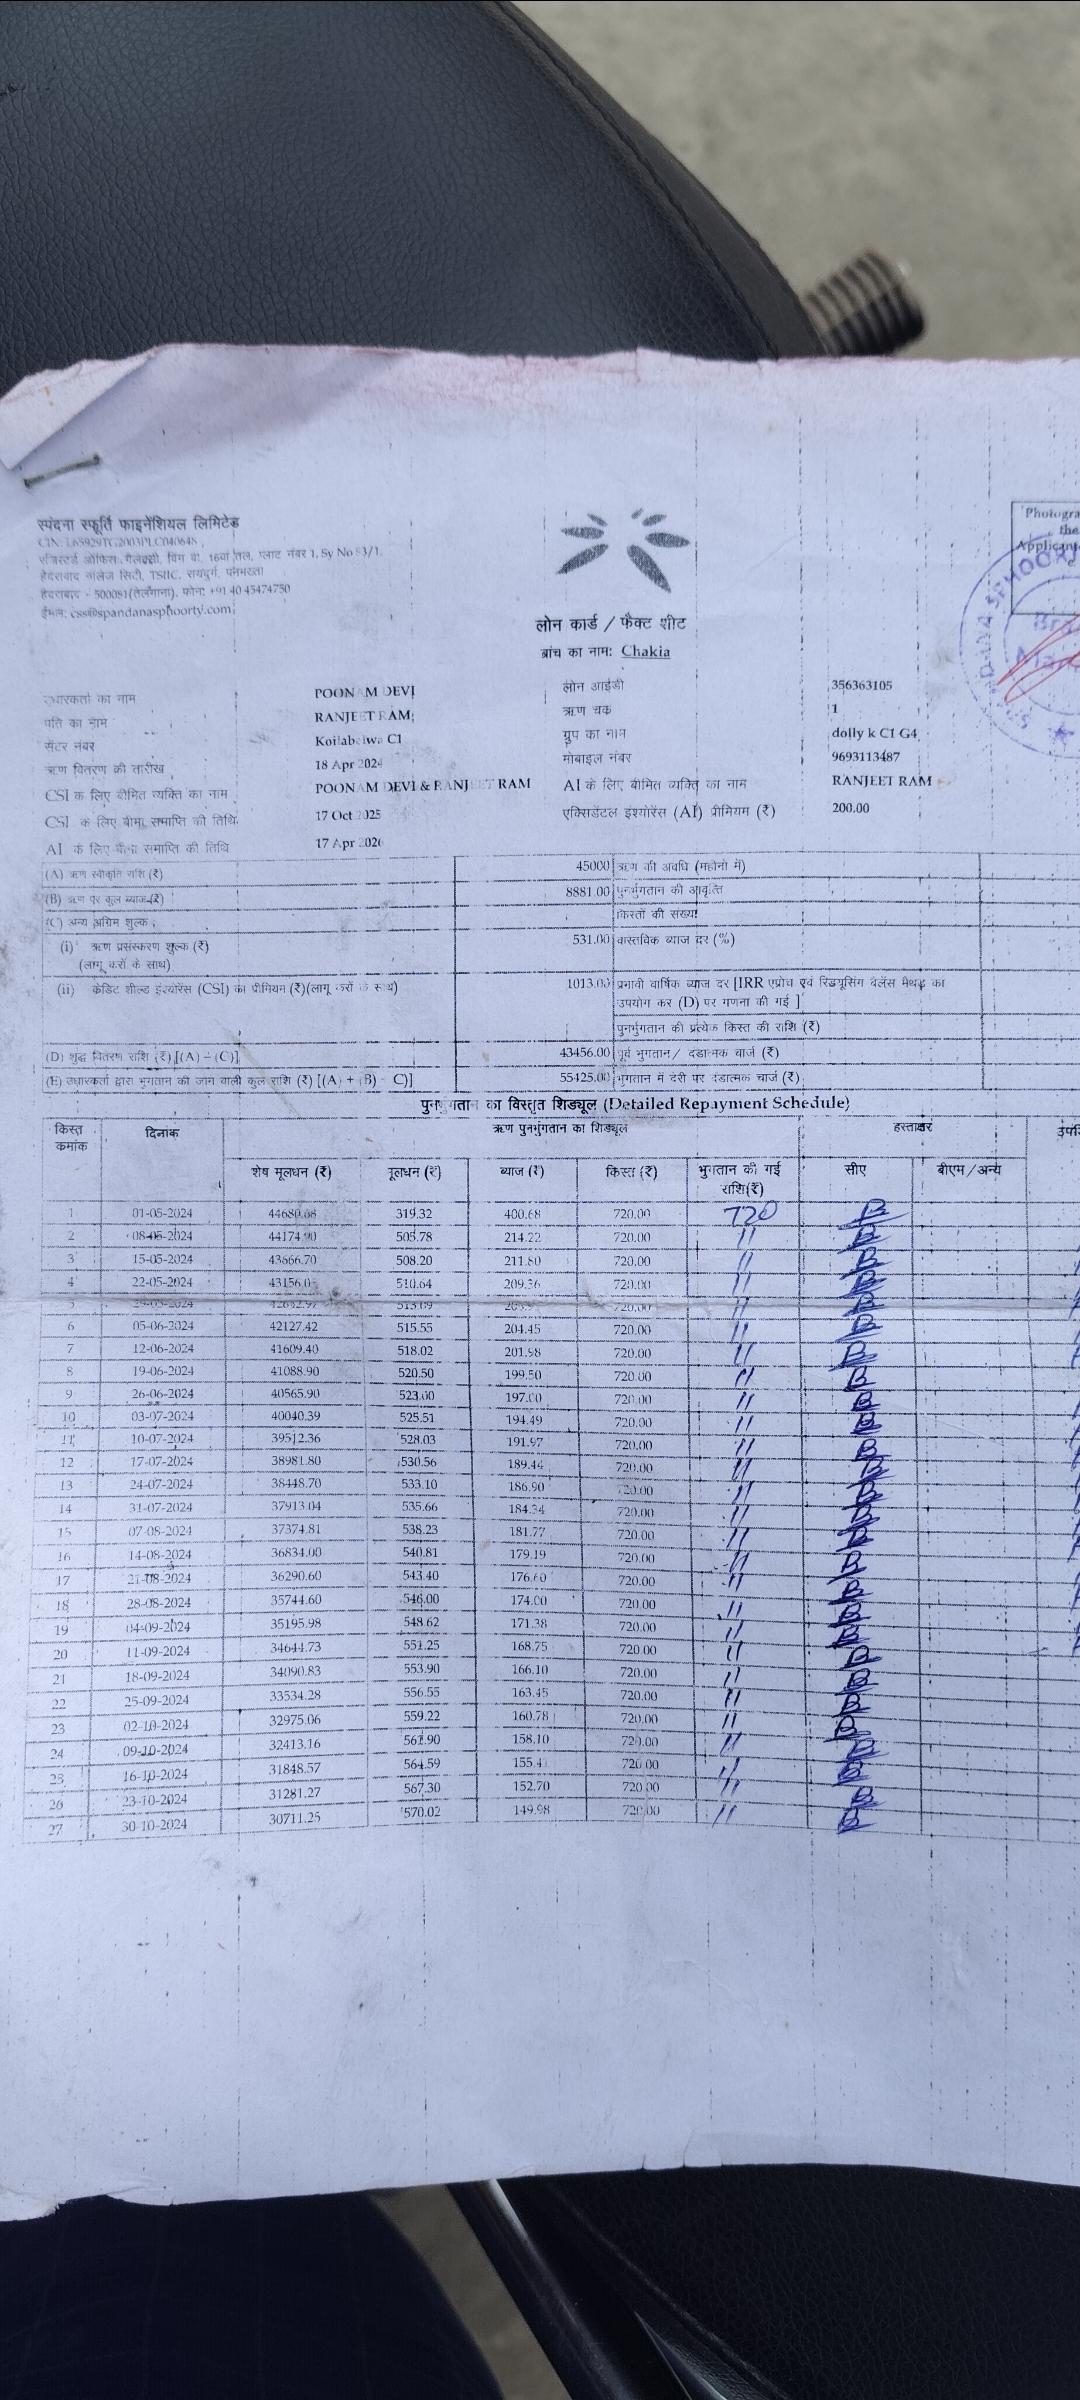 स्पंदना स्फूर्ति फाइनेंशियल लिमिटेड
CIN: L65929TG2003PLC040648
रजिस्टर्ड ऑफिस: गैलक्सी, विंग बी, 16वां तल, प्लाट नंबर 1, Sy No 83/1,
हैदराबाद नॉलेज सिटी, TSIIC, रायदुर्ग, पनमक्ता
हैदराबाद - 500081(तेलंगाना). फोन: +91 40 45474750
ईमेल: css@spandanasphoorty.com
Photogra
the
Applicant
लोन कार्ड / फैक्ट शीट
ब्रांच का नाम: Chakia
उधारकर्ता का नाम POONAM DEVI लोन आईडी 356363105
पति का नाम RANJEET RAM ऋण चक्र 1
सेंटर नंबर Koilabelwa C1 ग्रुप का नाम dolly k C1 G4
ऋण वितरण की तारीख 18 Apr 2024 मोबाइल नंबर 9693113487
CSI के लिए बीमित व्यक्ति का नाम POONAM DEVI & RANJEET RAM AI के लिए बीमित व्यक्ति का नाम RANJEET RAM
CSI के लिए बीमा समाप्ति की तिथि 17 Oct 2025 एक्सिडेंटल इंश्योरेंस (AI) प्रीमियम (₹) 200.00
AI के लिए बीमा समाप्ति की तिथि 17 Apr 2026
(A) ऋण स्वीकृति राशि (₹) 45000 ऋण की अवधि (महीनों में)
(B) ऋण पर कुल ब्याज (₹) 8881.00 पुनर्भुगतान की आवृत्ति
(C) अन्य अग्रिम शुल्क किस्तों की संख्या
(i) ऋण प्रसंस्करण शुल्क (₹) 531.00 वास्तविक ब्याज दर (%)
(लागू करों के साथ)
(ii) क्रेडिट शील्ड इंश्योरेंस (CSI) का प्रीमियम (₹)(लागू करों के साथ) 1013.00 प्रभावी वार्षिक ब्याज दर [IRR एप्रोच एवं रिड्यूसिंग बैलेंस मैथड का
उपयोग कर (D) पर गणना की गई ]
पुनर्भुगतान की प्रत्येक किस्त की राशि (₹)
(D) शुद्ध वितरण राशि (₹) [(A) - (C)] 43456.00 पूर्व भुगतान / दंडात्मक चार्ज (₹)
(E) उधारकर्ता द्वारा भुगतान की जाने वाली कुल राशि (₹) [(A) + (B) C)] 55425.00 भुगतान में देरी पर दंडात्मक चार्ज (₹)
पुनर्भुगतान का विस्तृत शिड्यूल (Detailed Repayment Schedule)
किस्त क्रमांक दिनांक ऋण पुनर्भुगतान का शिड्यूल हस्ताक्षर
शेष मूलधन (₹) मूलधन (₹) ब्याज (₹) किस्त (₹) भुगतान की गई राशि(₹) सीए बीएम/अन्य
1 01-05-2024 44680.68 319.32 400.68 720.00 720
2 08-05-2024 44174.90 505.78 214.22 720.00 "
3 15-05-2024 43666.70 508.20 211.80 720.00 "
4 22-05-2024 43156.0 510.64 209.36 720.00 "
720.00 "
6 05-06-2024 42127.42 515.55 204.45 720.00 "
7 12-06-2024 41609.40 518.02 201.98 720.00 "
8 19-06-2024 41088.90 520.50 199.50 720.00 "
9 26-06-2024 40565.90 523.00 197.00 720.00 "
10 03-07-2024 40040.39 525.51 194.49 720.00 "
11 10-07-2024 39512.36 528.03 191.97 720.00 "
12 17-07-2024 38981.80 530.56 189.44 720.00 "
13 24-07-2024 38448.70 533.10 186.90 720.00 "
14 31-07-2024 37913.04 535.66 184.34 720.00 "
15 07-08-2024 37374.81 538.23 181.77 720.00 "
16 14-08-2024 36834.00 540.81 179.19 720.00 "
17 21-08-2024 36290.60 543.40 176.60 720.00 "
18 28-08-2024 35744.60 546.00 174.00 720.00 "
19 04-09-2024 35195.98 548.62 171.38 720.00 "
20 11-09-2024 34644.73 551.25 168.75 720.00 "
21 18-09-2024 34090.83 553.90 166.10 720.00 "
22 25-09-2024 33534.28 556.55 163.45 720.00 "
23 02-10-2024 32975.06 559.22 160.78 720.00 "
24 09-10-2024 32413.16 561.90 158.10 720.00 "
25 16-10-2024 31848.57 564.59 155.41 720.00 "
26 23-10-2024 31281.27 567.30 152.70 720.00 "
27 30-10-2024 30711.25 570.02 149.98 720.00 "